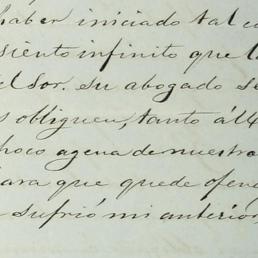 haber iniciado tal co
siento infinito que l
el Sor. su abogado se
s obliguen, tanto á
poco agena de nuestra
para que quede ofen
sufrió mi anterior,